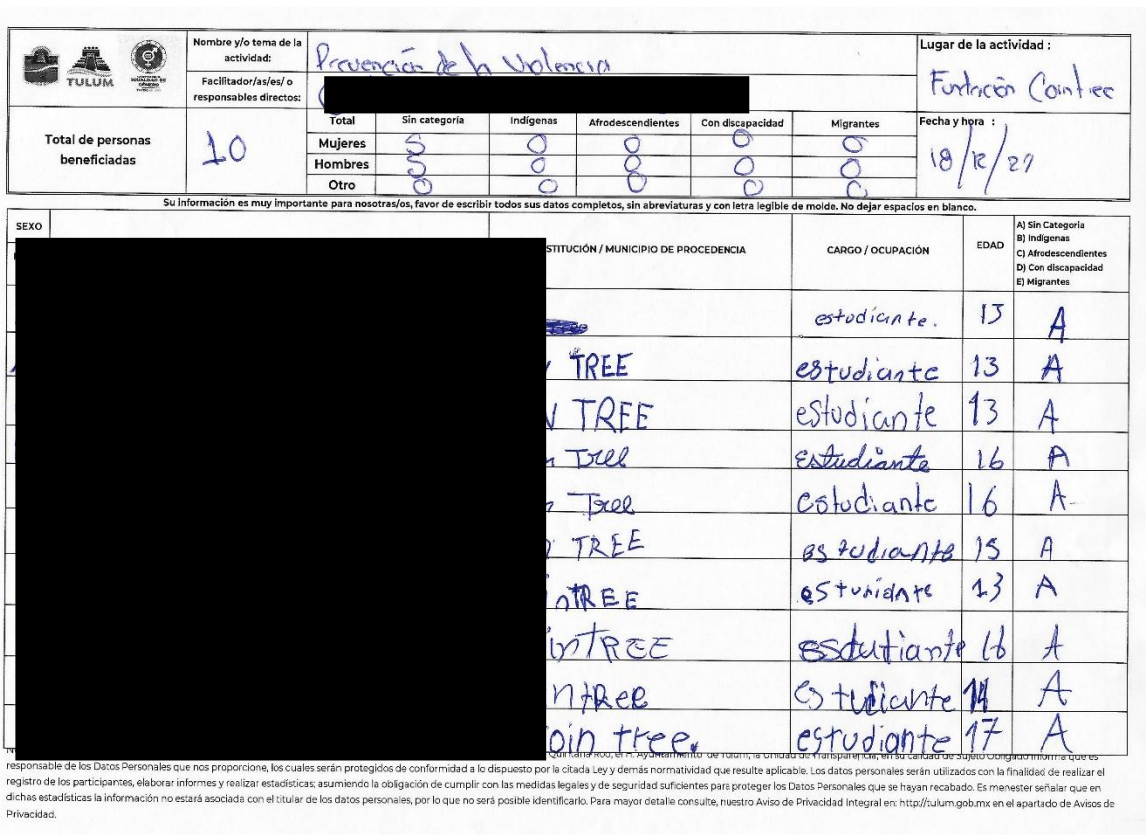 TULUM
Nombre y/o tema de la actividad:
Prevención de la Violencia
Lugar de la actividad :
Fundación Cointree
Facilitador/as/es/ o responsables directos:
Total de personas beneficiadas
10
Total Sin categoría Indígenas Afrodescendientes Con discapacidad Migrantes
Mujeres 5 0 0 0 0
Hombres 5 0 0 0 0
Otro 0 0 0 0 0
Fecha y hora :
18/12/
Su información es muy importante para nosotras/os, favor de escribir todos sus datos completos, sin abreviaturas y con letra legible de molde. No dejar espacios en blanco.
SEXO
STITUCIÓN / MUNICIPIO DE PROCEDENCIA
CARGO / OCUPACIÓN
EDAD
A) Sin Categoria
B) Indígenas
C) Afrodescendientes
D) Con discapacidad
E) Migrantes
estudiante. A
TREE estudiante 13 A
TREE estudiante 13 A
Tree estudiante 16 A
Tree estudiante 16 A
TREE estudiante 15 A
inTREE 13 A
inTREE esdutiante 16 A
ntRee estudiante 14 A
oin tree. estudiante 17 A
responsable de los Datos Personales que nos proporcione, los cuales serán protegidos de conformidad a lo dispuesto por la citada Ley y demás normatividad que resulte aplicable. Los datos personales serán utilizados con la finalidad de realizar el
registro de los participantes, elaborar informes y realizar estadísticas; asumiendo la obligación de cumplir con las medidas legales y de seguridad suficientes para proteger los Datos Personales que se hayan recabado. Es menester señalar que en
dichas estadísticas la información no estará asociada con el titular de los datos personales, por lo que no será posible identificarlo. Para mayor detalle consulte, nuestro Aviso de Privacidad Integral en: http://tulum.gob.mx en el apartado de Avisos de
Privacidad.